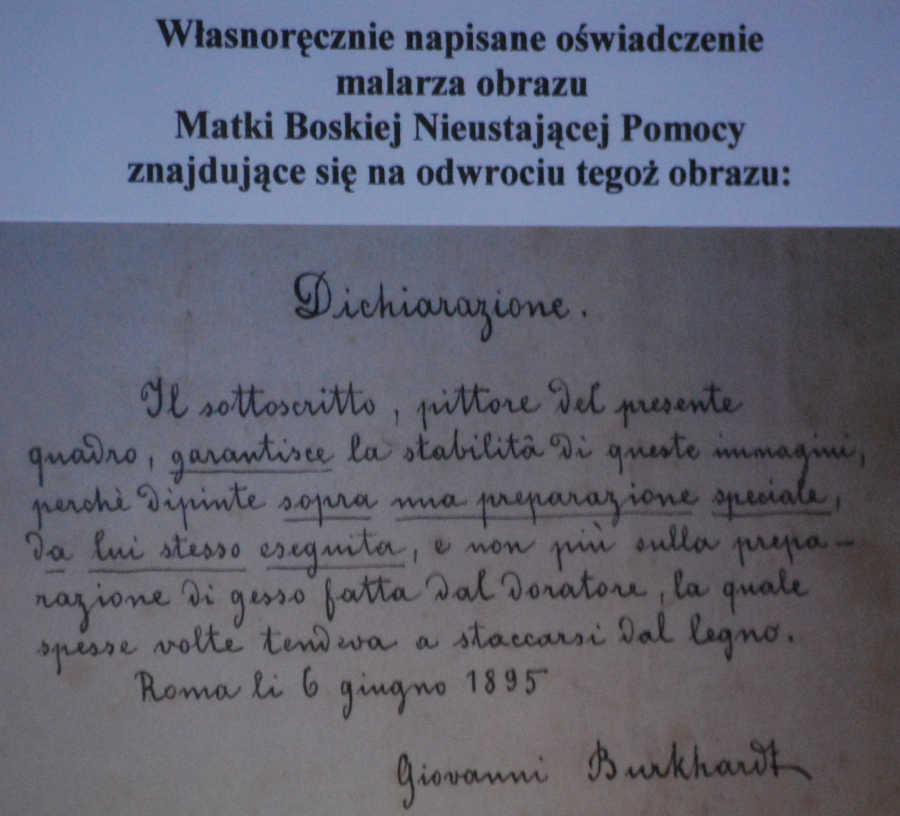 Własnoręcznie napisane oświadczenie
malarza obrazu
Matki Boskiej Nieustającej Pomocy
znajdujące się na odwrociu tegoż obrazu:
Dichiarazione.
Il sottoscritto, pittore del presente
quadro, garantisce la stabilità di queste immagini,
perchè dipinte sopra una preparazione speciale,
da lui stesso eseguita, e non più sulla prepa-
razione di gesso fatta dal doratore, la quale
spesse volte tendeva a staccarsi dal legno.
Roma li 6 giugno 1895
Giovanni Burkhardt